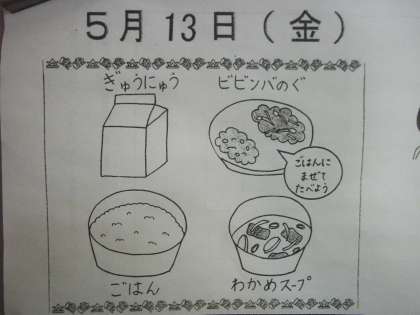 5月13日(金)
ぎゅうにゅう
ビビンバのぐ
ごはんに
まぜて
たべよう
ごはん
わかめスープ